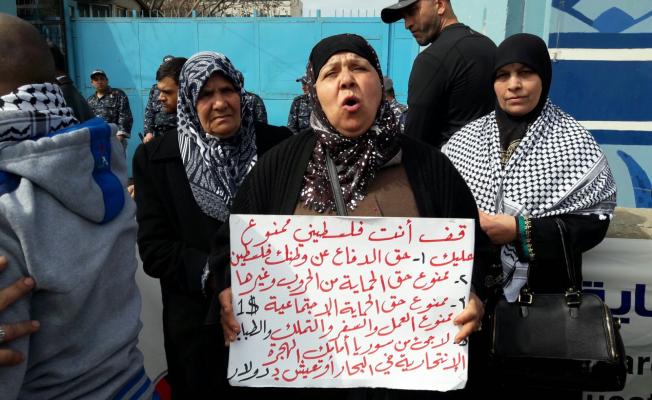 قف أنت فلسطيني ممنوع
عليك ١- حق الدفاع عن وطنك فلسطين
٢- ممنوع حق الحماية من الحروب وغيرها
٣- ممنوع حق الحماية الاجتماعية 1$
ممنوع العمل والسفر والتملك والطبابة
لاجئ من سوريا أمامك الهجرة
الانتحارية في البحار أو تعيش بـ دولار